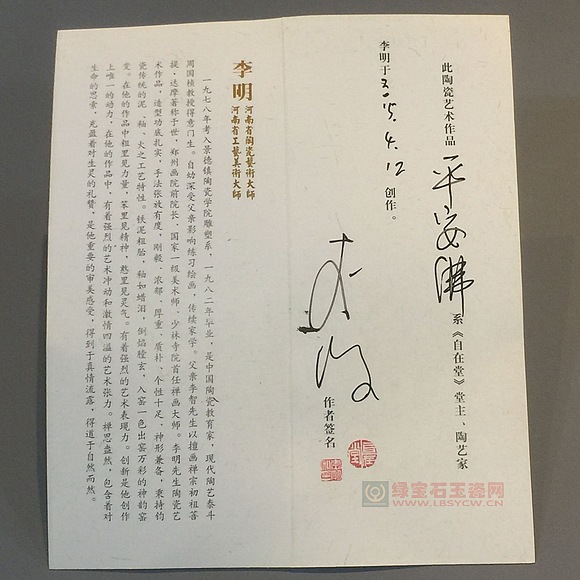 此陶瓷艺术作品 平安佛 系《自在堂》堂主、陶艺家
李明于 2015.4.12 创作。
作者签名
李明
河南省陶瓷藝術大师
河南省工藝美術大师
一九七八年考入景德镇陶瓷学院雕塑系，一九八二年毕业，是中国陶瓷教育家，现代陶艺泰斗
周国桢教授得意门生。自幼深受父亲影响练习绘画，传续家学。父亲李智先生以擅画禅宗初祖菩
提·达摩著称于世，郑州画院前院长、国家一级美术师、少林寺院首任禅画大师。李明先生陶瓷艺
术作品，造型功底扎实，手法张弛有度，刚毅、浓郁、厚重、质朴、个性十足、神形兼备，秉持钧
瓷传统的泥、釉、火之工艺特性。铁泥粗胎，釉如蜡泪，倒焰膛玄，入窑一色出窑万彩的神韵窑
变。在他的作品中粗里见力量，笨里见精神，憨里见灵气。有着强烈的艺术表现力。创新是他创作
上唯一的动力，在他的作品中，有着强烈的艺术冲动和激情四溢的艺术张力。禅思盎然，包含着对
生命的思索，充盈着对生灵的礼赞，是他重要的审美感受，得到于真情流露，得道于自然而然。
绿宝石玉瓷网
WWW.LBSYCW.CN